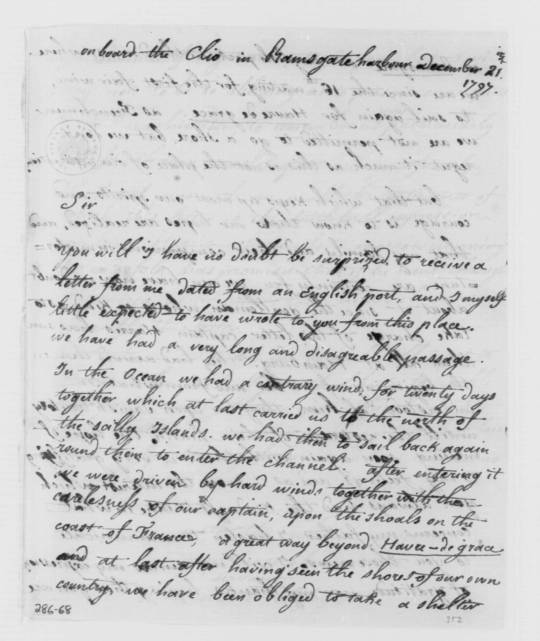 on board the Clio in Ramsgate harbour december 21st
1797.
Sir
you will I have no doubt be surprized to receive a
letter from me dated from an English port, and I myself
little expected to have wrote to you from this place.
we have had a very long and disagreable passage.
In the Ocean we had a contrary wind for twenty days
together which at last carried us to the north of
the sally Islands. we had then to sail back again
round them to enter the channel. after entering it
we were driven by hard winds together with the
carelesness of our captain, upon the shoals on the
coast of France, a great way beyond Havre-de grace
and at last after having seen the shores of our own
country we have been obliged to take a shelter
286-68
352